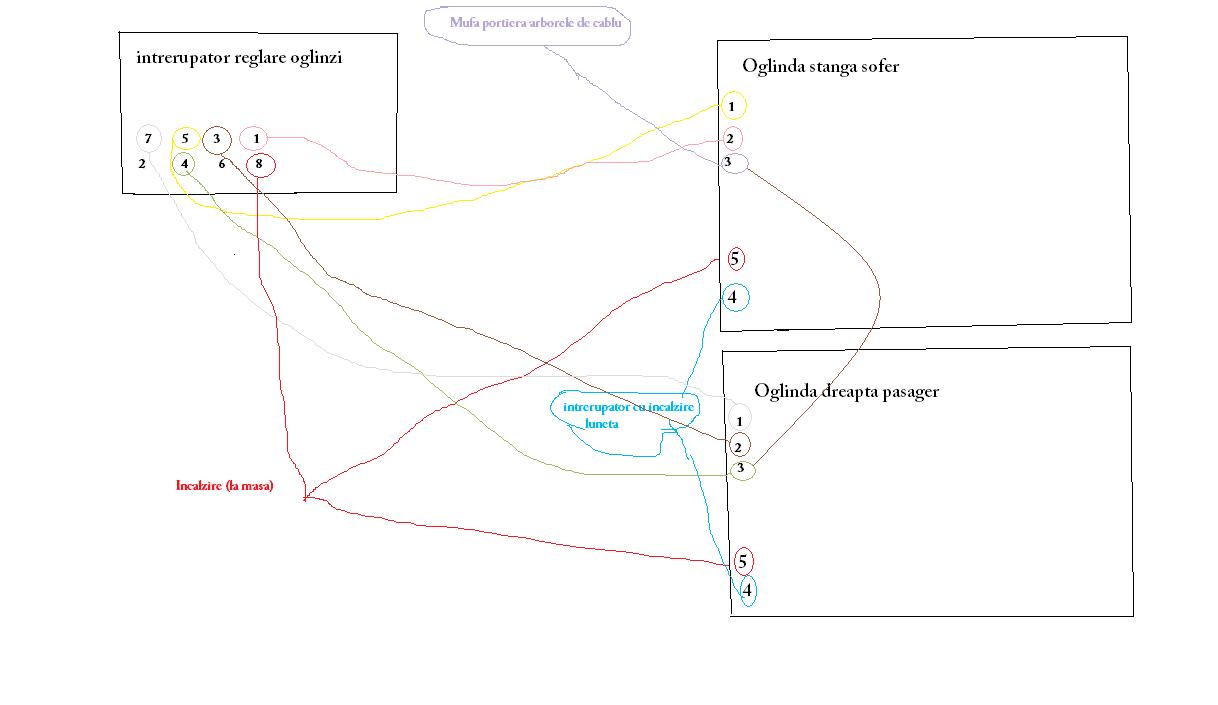 Mufa portiera arborele de cablu
intrerupator reglare oglinzi
7 5 3 1
2 4 6 8
Oglinda stanga sofer
1
2
3
5
4
intrerupator cu incalzire
luneta
Oglinda dreapta pasager
1
2
3
5
4
Incalzire (la masa)